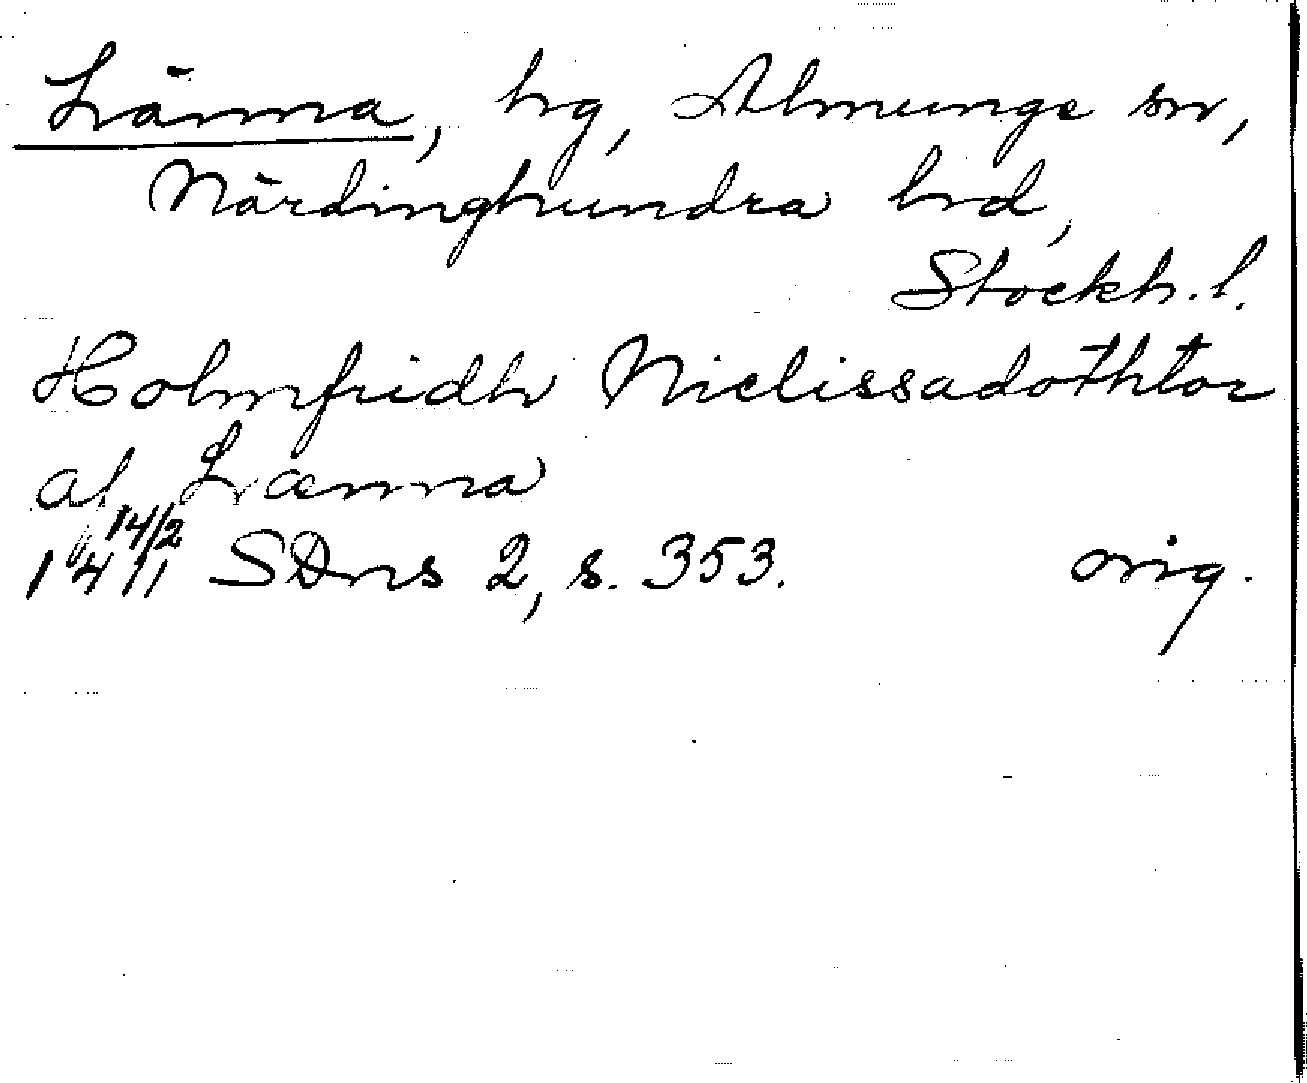 Länna, hg, Almunge sn,
Närdinghundra hd,
Stockh. l.
Holmfridh Nielissadothtor
af Lænna
14/2
1411 SDns 2, s. 353. orig.